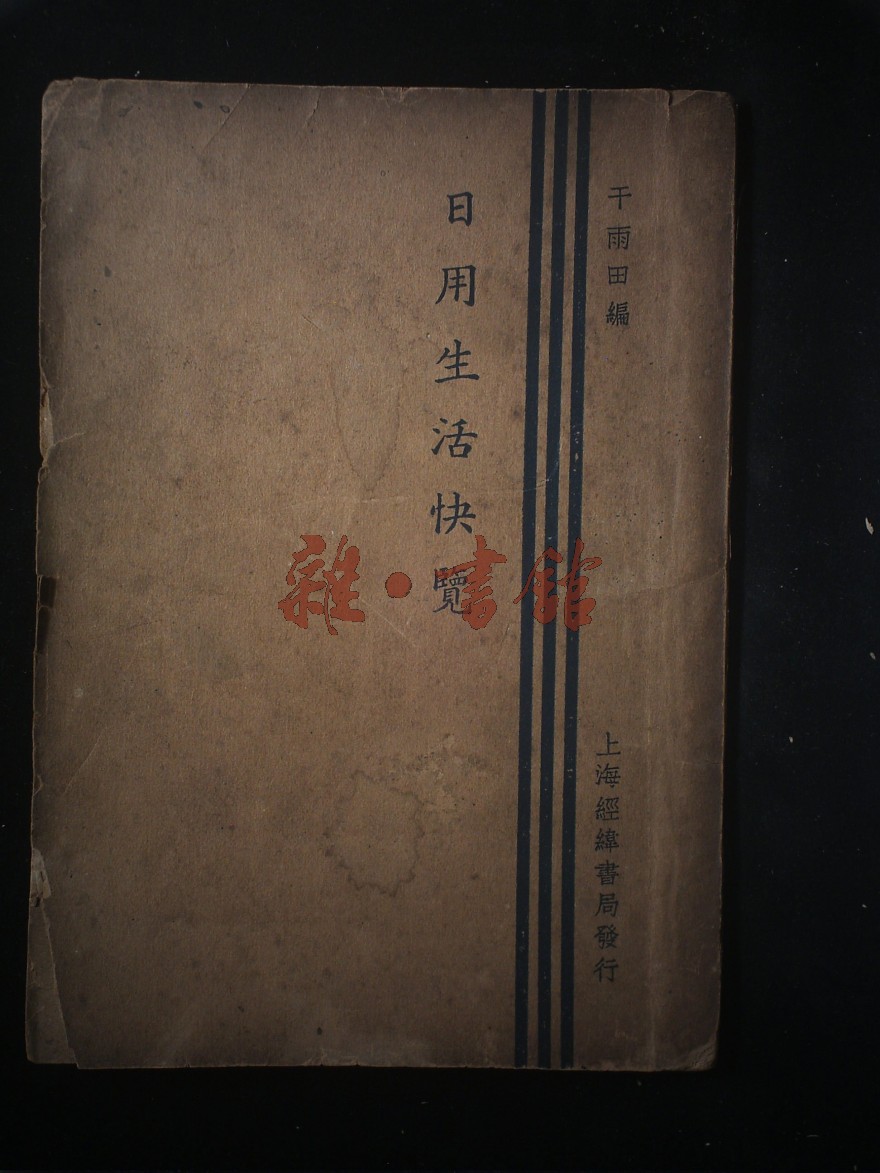 干雨田編
上海經緯書局發行
日用生活快覽
雜·書館